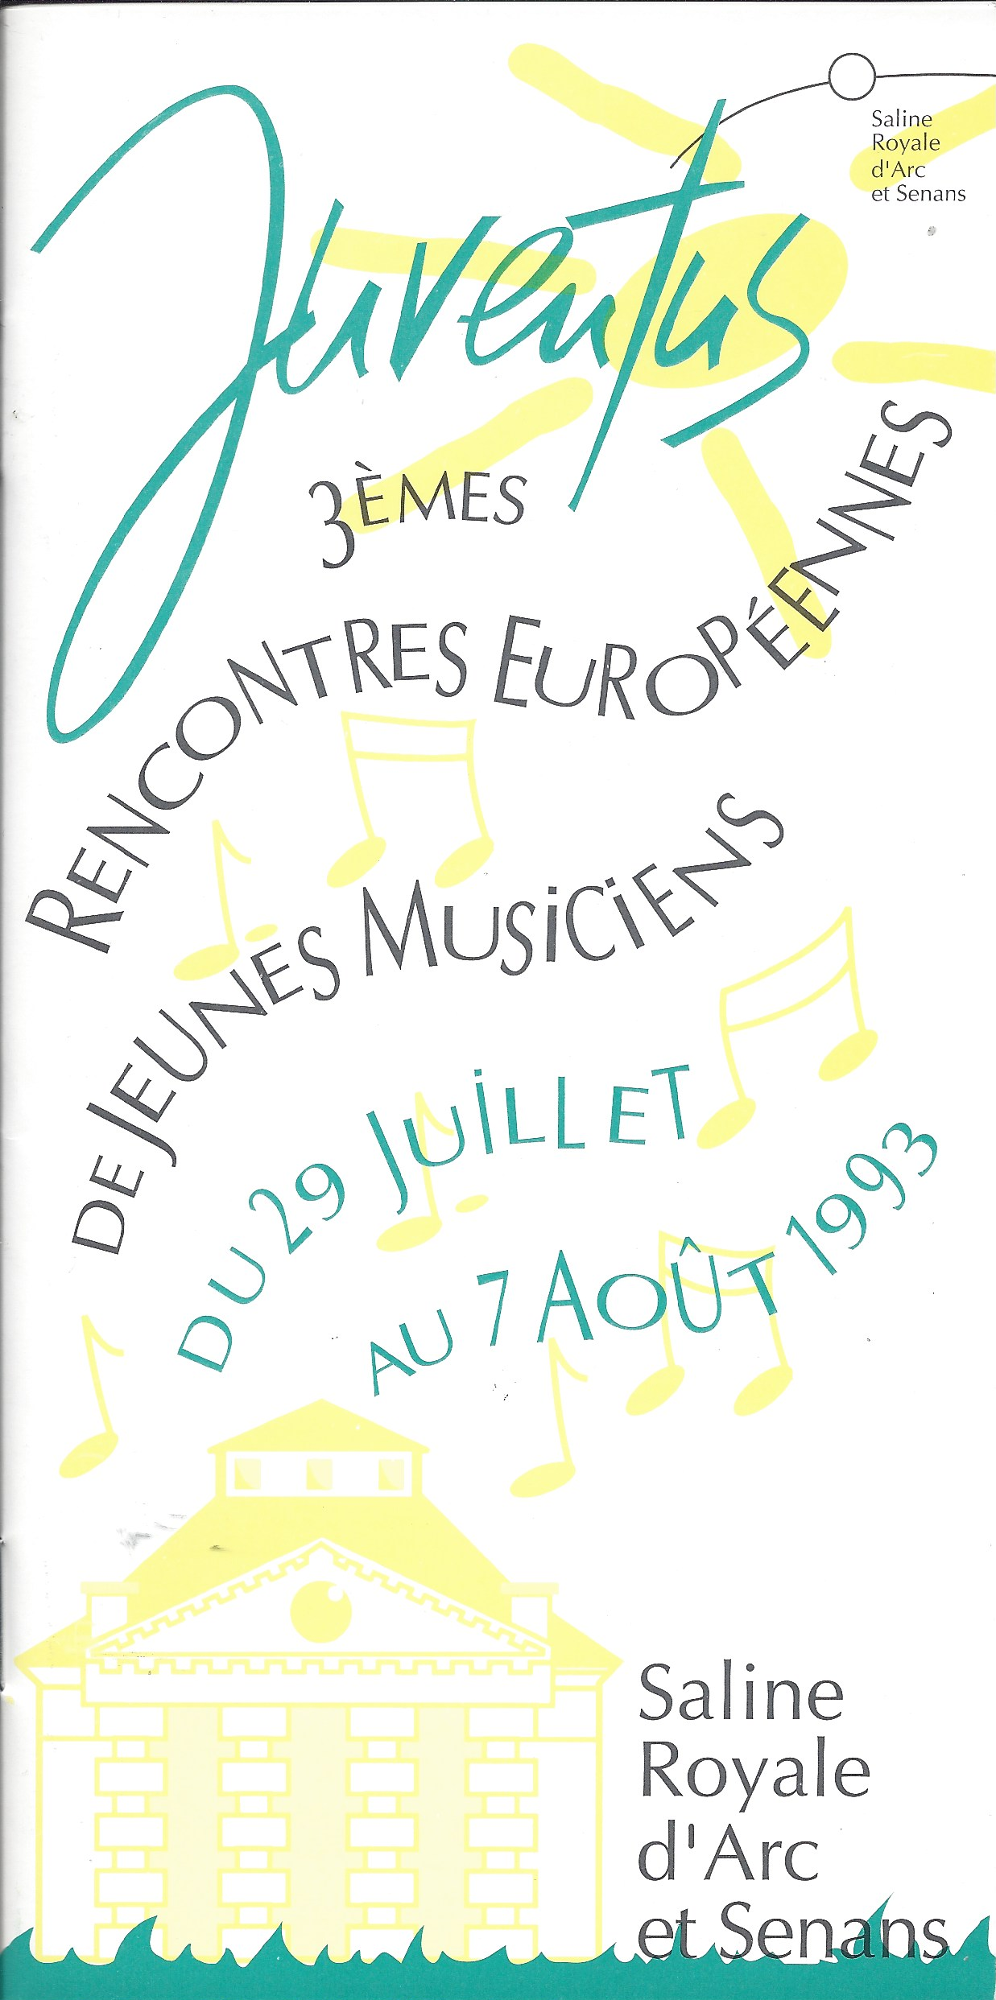 Saline
Royale
d'Arc
et Senans
Juventus
3ÈMES
RENCONTRES EUROPÉENNES
DE JEUNES MUSiCiENS
DU 29 JUiLLET
AU 7 AOÛT 1993
Saline
Royale
d'Arc
et Senans